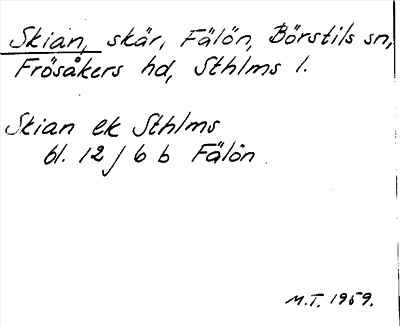 Skian, skär, Fälön, Börstils sn,
Frösåkers hd, Sthlms l.
Skian ek Sthlms
bl. 12 J 6 b Fälön
M.T. 1959.